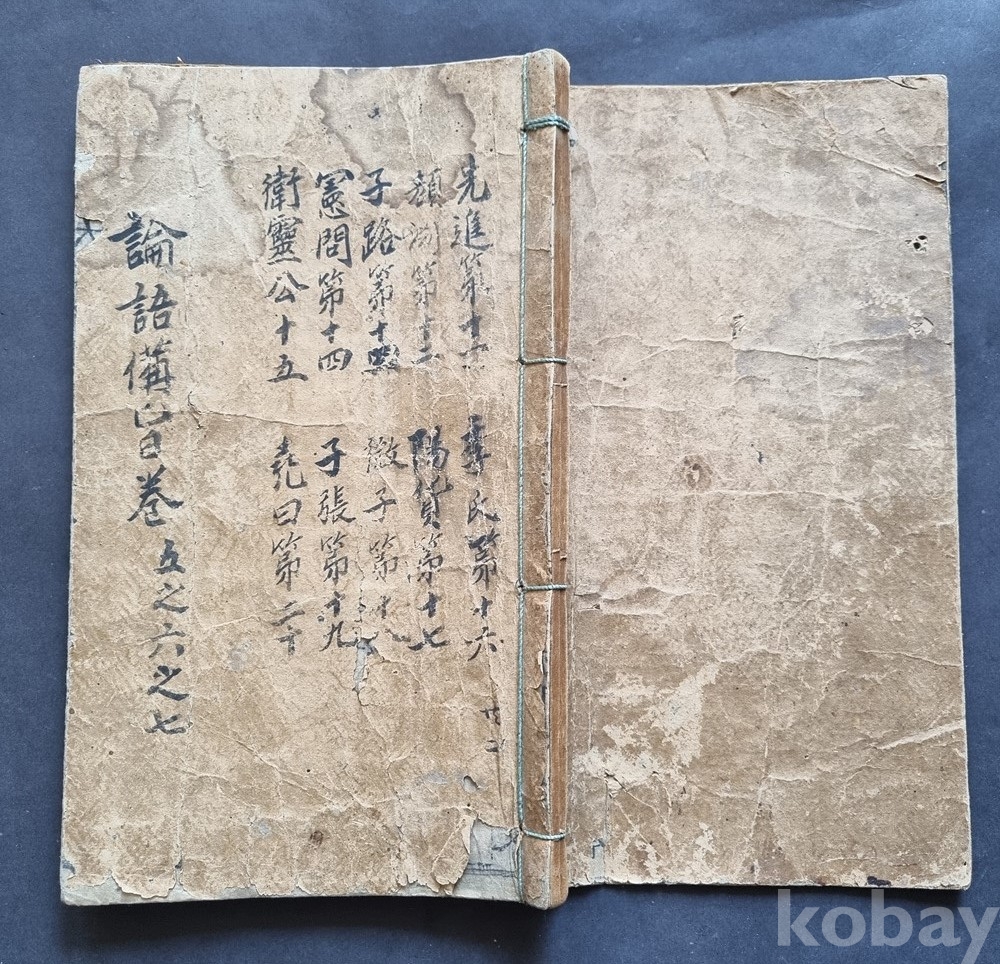 先進第十
顔淵第十二
子路第十
憲問第十四
衛靈公十五
季氏第十六
陽貨第十七
微子第十八
子張第十九
堯曰第二十
論語備旨卷 五之六之七
kobay